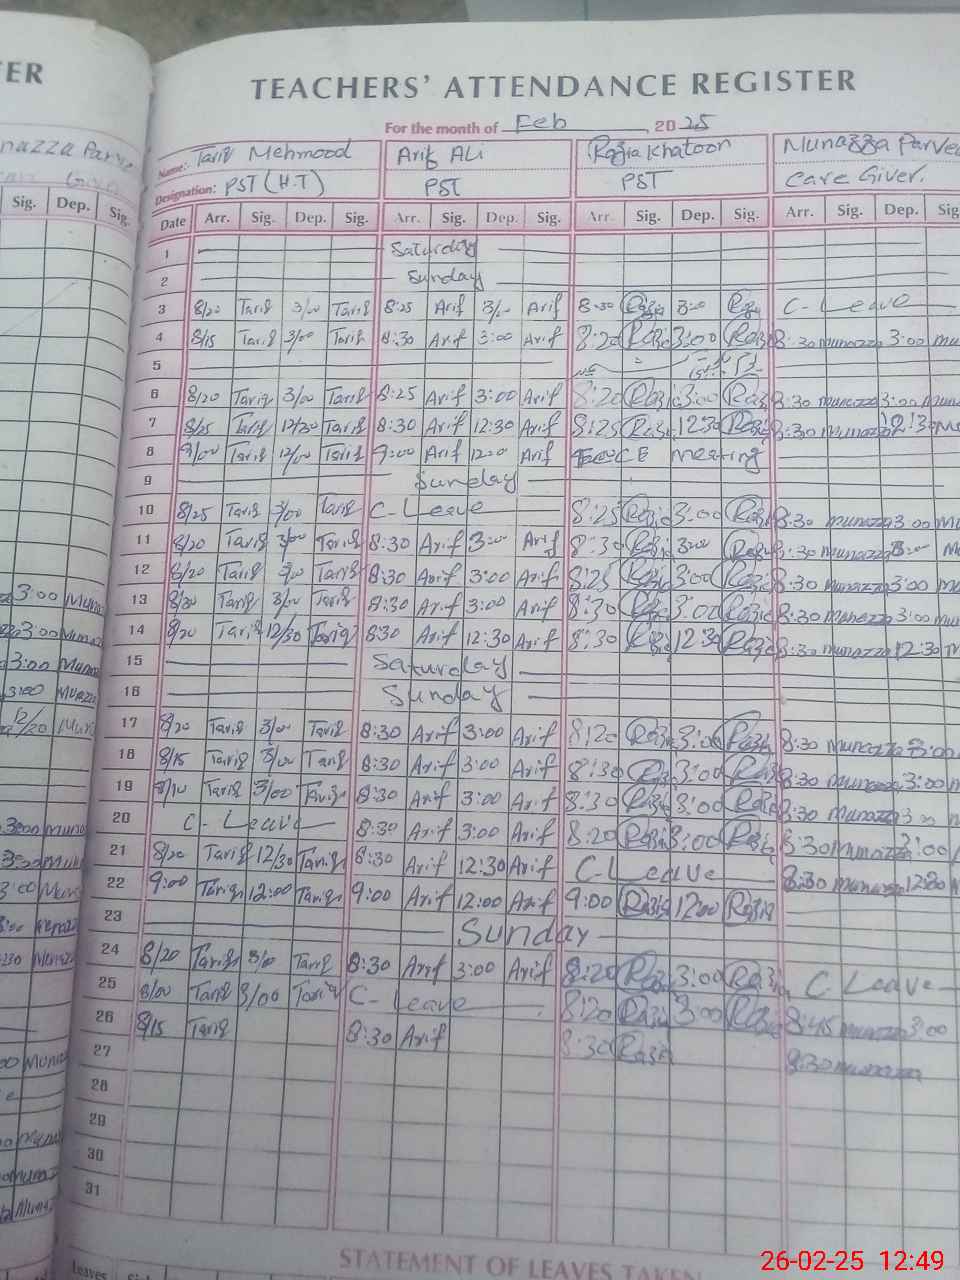 TER
TEACHERS' ATTENDANCE REGISTER
For the month of Feb 2025
Name: Tariq Mehmood Arif Ali Razia Khatoon Munazza Parve
Designation: PST (H.T) PST PST Care Giver.
Sig. Dep. Sig. Date Arr. Sig. Dep. Sig. Arr. Sig. Dep. Sig. Arr. Sig. Dep. Sig. Arr. Sig. Dep. Sig
1 Saturday
2 Sunday
3 8/20 Tariq 3/00 Tariq 8:25 Arif 3/00 Arif 8:30 Razia 3:00 Razia C- Leave
4 8/15 Tariq 3/00 Tariq 8:30 Arif 3:00 Arif 8:20 Razia 3:00 Razia 8:30 munazza 3:00 mu
5
6 8/20 Tariq 3/00 Tariq 8:25 Arif 3:00 Arif 8:20 Razia 3:00 Razia 8:30 munazza 3:00 mun
7 8/25 Tariq 12/30 Tariq 8:30 Arif 12:30 Arif 8:25 Razia 12:30 Razia 8:30 munazza 12:30 mu
8 9/00 Tariq 12/00 Tariq 9:00 Arif 12:00 Arif ECCE meeting
9 Sunday
10 8/25 Tariq 3/00 Tariq C- Leave 8:25 Razia 3:00 Razia 8:30 munazza 3:00 mu
11 8/20 Tariq 3/00 Tariq 8:30 Arif 3:00 Arif 8:30 Razia 3:00 Razia 8:30 munazza 3:00 mu
12 8/20 Tariq 3/00 Tariq 8:30 Arif 3:00 Arif 8:25 Razia 3:00 Razia 8:30 munazza 3:00 mu
13 8/30 Tariq 3/00 Tariq 8:30 Arif 3:00 Arif 8:30 Razia 3:00 Razia 8:30 munazza 3:00 mu
14 8/20 Tariq 12/30 Tariq 8:30 Arif 12:30 Arif 8:30 Razia 12:30 Razia 8:30 munazza 12:30 m
15 Saturday
16 Sunday
17 8/20 Tariq 3/00 Tariq 8:30 Arif 3:00 Arif 8:20 Razia 3:00 Razia 8:30 munazza 3:00
18 8/15 Tariq 3/00 Tariq 8:30 Arif 3:00 Arif 8:30 Razia 3:00 Razia 8:30 munazza 3:00 m
19 8/10 Tariq 3/00 Tariq 8:30 Arif 3:00 Arif 8:30 Razia 3:00 Razia 8:30 munazza 3:00 m
20 C- Leave 8:30 Arif 3:00 Arif 8:20 Razia 3:00 Razia 8:30 munazza 3:00
21 8/20 Tariq 12/30 Tariq 8:30 Arif 12:30 Arif C- Leave 8:30 munazza 12:30 m
22 9:00 Tariq 12:00 Tariq 9:00 Arif 12:00 Arif 9:00 Razia 12:00 Razia
23 Sunday
24 8/20 Tariq 3/00 Tariq 8:30 Arif 3:00 Arif 8:20 Razia 3:00 Razia C. Leave
25 8/00 Tariq 3/00 Tariq C- Leave 8:20 Razia 3:00 Razia 8:45 munazza 3:00
26 8/15 Tariq 8:30 Arif 8:30 Razia 8:30 munazza
27
28
29
30
31
STATEMENT OF LEAVES TAKEN
Leaves
26-02-25 12:49